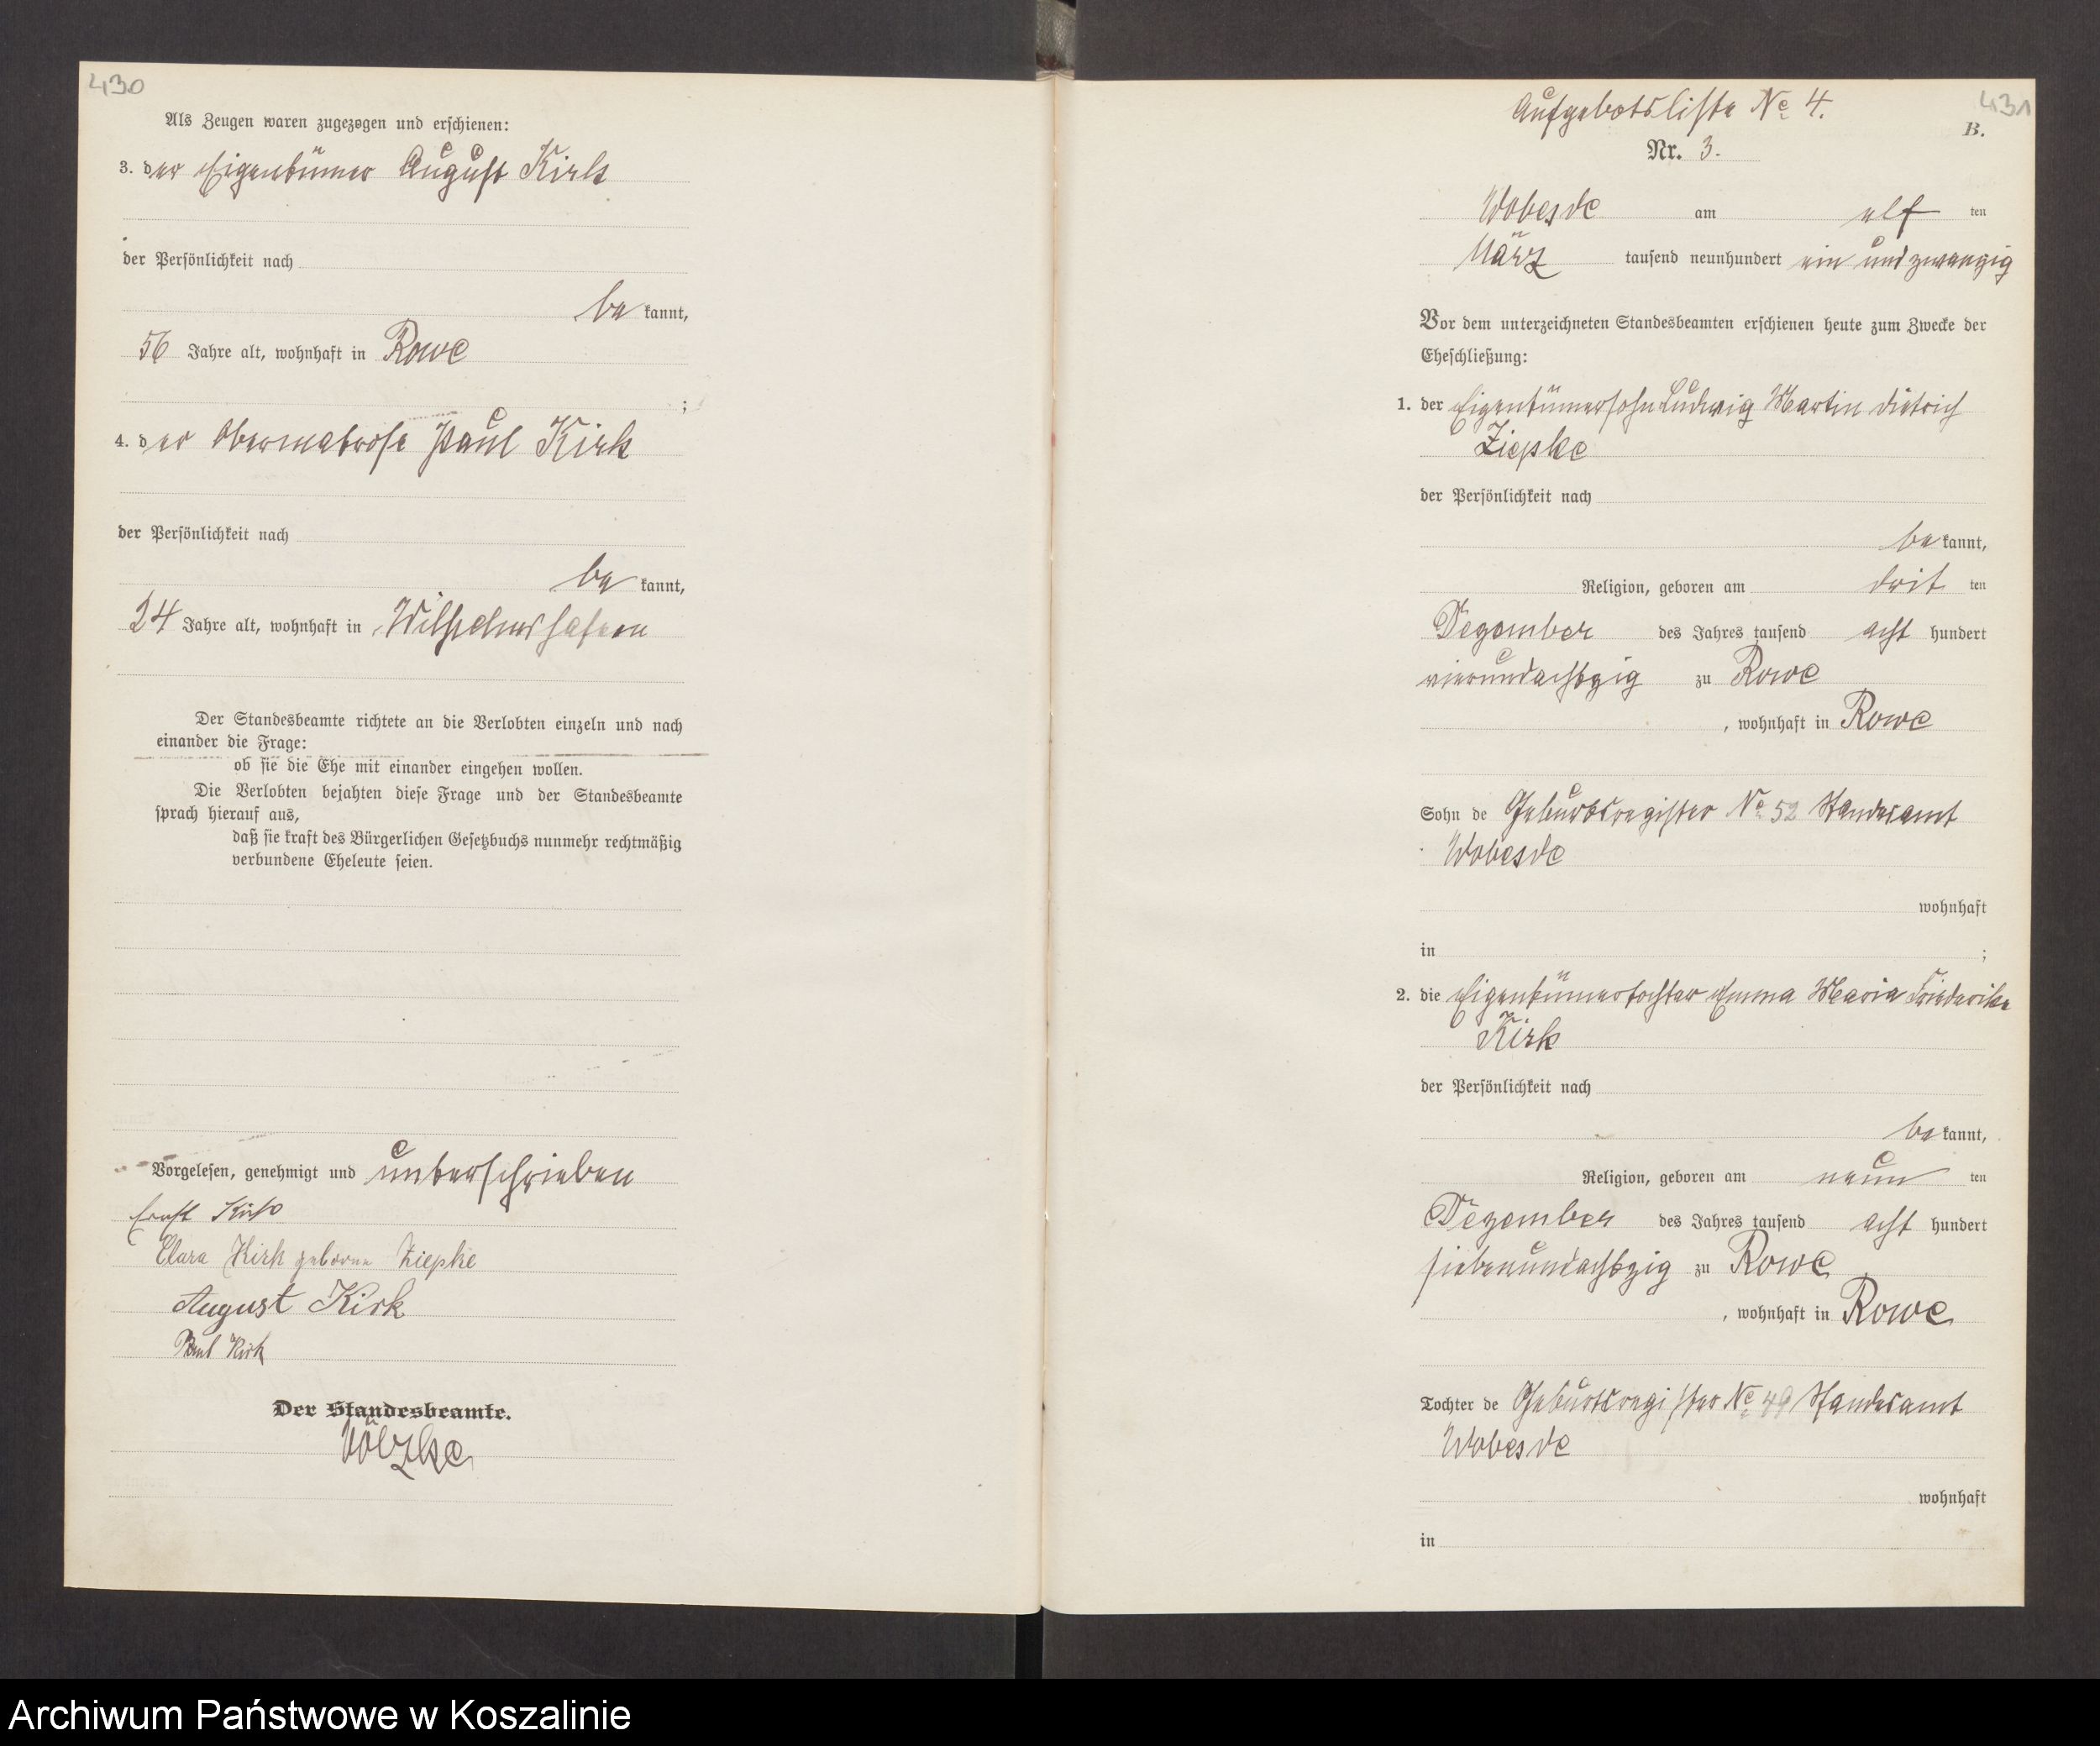 430
Als Zeugen waren zugezogen und erschienen:
3. der Eigentümer August Kirk
der Persönlichkeit nach
be kannt,
56 Jahre alt, wohnhaft in Rowe
;
4. der Obermatrose Paul Kirk
der Persönlichkeit nach
be kannt,
24 Jahre alt, wohnhaft in Wilhelmshafen
Der Standesbeamte richtete an die Verlobten einzeln und nach
einander die Frage:
ob sie die Ehe mit einander eingehen wollen.
Die Verlobten bejahten diese Frage und der Standesbeamte
sprach hierauf aus,
daß sie kraft des Bürgerlichen Gesetzbuchs nunmehr rechtmäßig
verbundene Eheleute seien.
Vorgelesen, genehmigt und unterschrieben
Ernst Kirk
Clara Kirk geborne Ziepke
August Kirk
Paul Kirk
Der Standesbeamte.
Völzke
Aufgebotsliste No 4.
431
B.
Nr. 3.
Wobesde am elf ten
März tausend neunhundert ein und zwanzig
Vor dem unterzeichneten Standesbeamten erschienen heute zum Zwecke der
Eheschließung:
1. der Eigentümersohn Ludwig Martin Dietrich
Ziepke
der Persönlichkeit nach
be kannt,
Religion, geboren am drit ten
Dezember des Jahres tausend acht hundert
vierundachtzig zu Rowe
, wohnhaft in Rowe
Sohn de Geburtsregister No 52 Standesamt
Wobesde
wohnhaft
in ;
2. die Eigentümertochter Emma Maria Friederike
Kirk
der Persönlichkeit nach
be kannt,
Religion, geboren am neun ten
Dezember des Jahres tausend acht hundert
siebenundachtzig zu Rowe
, wohnhaft in Rowe
Tochter de Geburtsregister No 49 Standesamt
Wobesde
wohnhaft
in
Archiwum Państwowe w Koszalinie